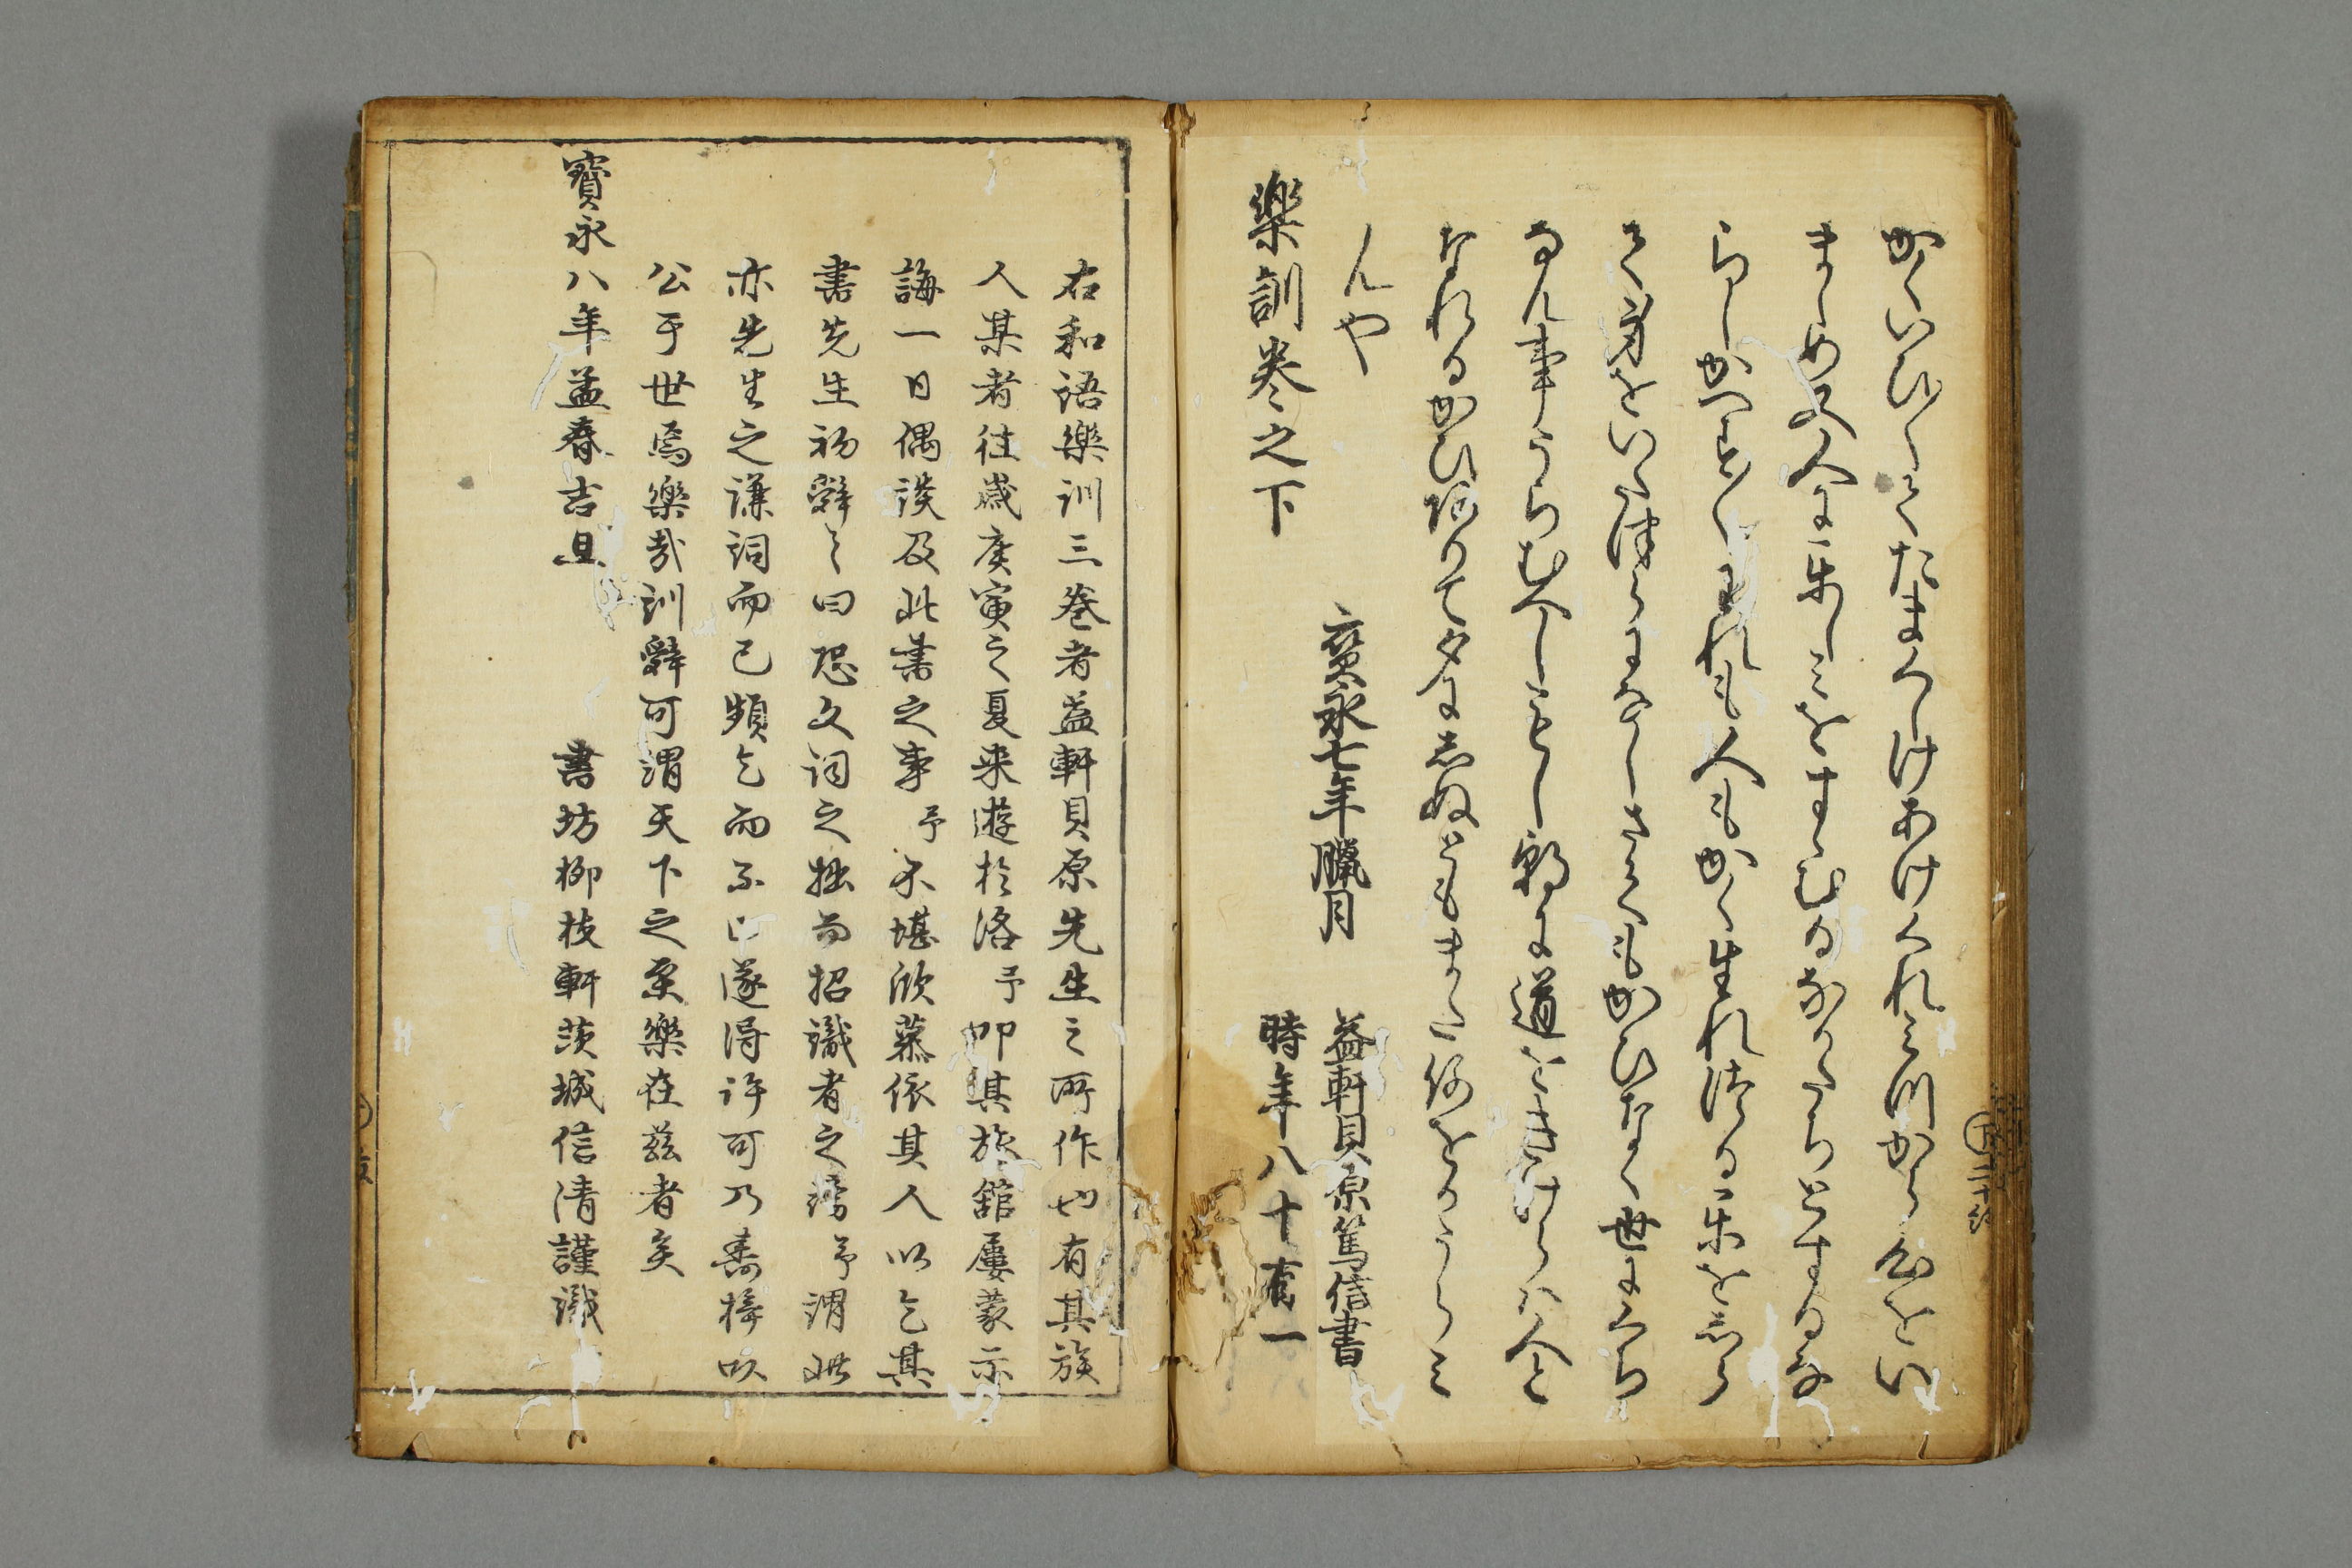 かくいひ〳〵てたまくしけあけくれミつから心をい
ましめ又人に楽しミをすゝむるなかたちとするな
らしかへす〳〵われも人もかく生れ得たる楽を忘ら
て身をいたつらになしさくもかひなく世にくち
なん事うらむへしもし朝に道をきけらハ人と
なれるかひ有て夕に志ぬともまた何をかうらミ
んや
寶永七年臘月 益軒貝原篤信書
時年八十有一
樂訓巻之下
右和語樂訓三巻者益軒貝原先生之所作也有其族
人某者往歳庚寅之夏来遊於洛予即其旅舘屢蒙示
誨一日偶談及此書之事予不堪欣慕依其人以乞其
書先生初辭之曰恐文詞之拙而招識者之謗予謂此
亦先生之謙詞而已頻乞而不止遂得許可乃壽梓以
公于世焉樂哉訓辭可謂天下之至樂在茲者矣
寶永八年孟春吉旦 書坊柳枝軒茨城信清謹識